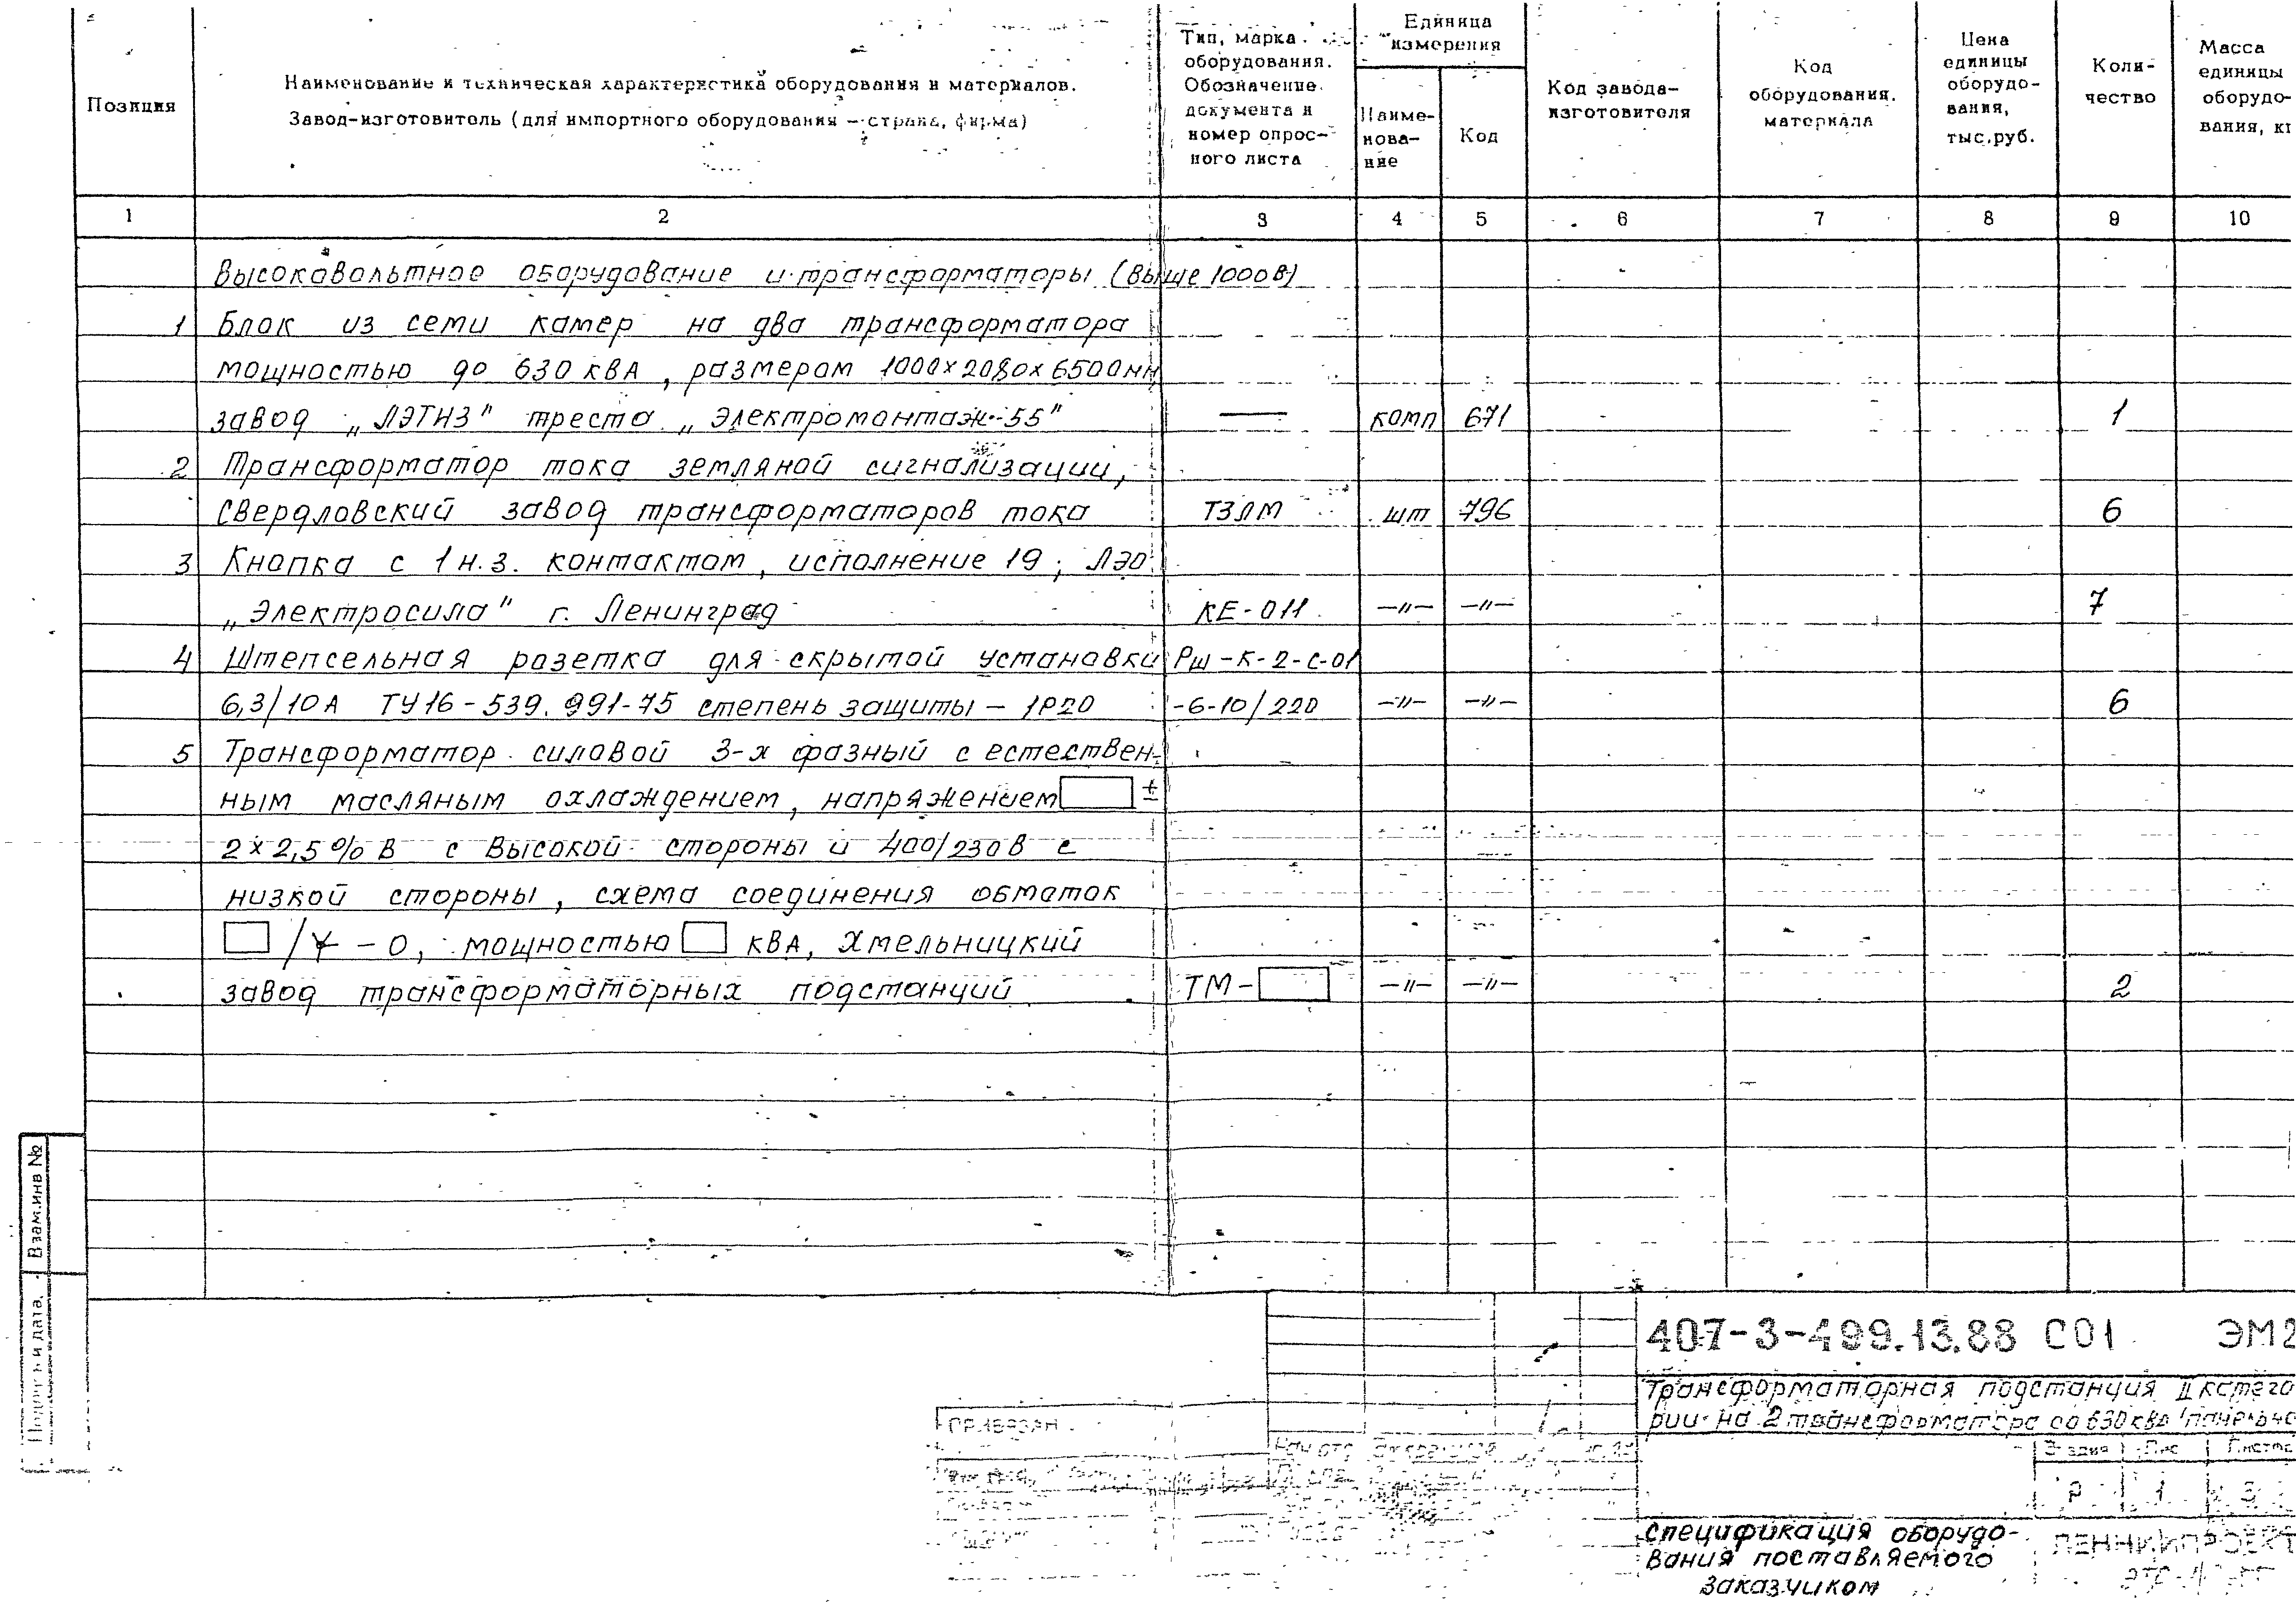 Позиция
Наименование и техническая характеристика оборудования и материалов.
Завод-изготовитель (для импортного оборудования – страна, фирма)
Тип, марка
оборудования.
Обозначение
документа и
номер опрос-
ного листа
Единица
измерения
Наиме-
нова-
ние
Код
Код завода-
изготовителя
Код
оборудования,
материала
Цена
единицы
оборудо-
вания,
тыс.руб.
Коли-
чество
Масса
единицы
оборудо-
вания, кг
1 2 3 4 5 6 7 8 9 10
Высоковольтное оборудование и трансформаторы (выше 1000В)
1 Блок из семи камер на два трансформатора
мощностью до 630 кВА, размером 1000х2080х6500мм
завод „ЛЭТНЗ" треста „Электромонтаж-55" — комп 671 1
2 Трансформатор тока земляной сигнализации,
Свердловский завод трансформаторов тока ТЗЛМ шт 796 6
3 Кнопка с 1 н.з. контактом, исполнение 19; ЛЭО
„Электросила" г. Ленинград КЕ-011 —"— —"— 7
4 Штепсельная розетка для скрытой установки Рш-К-2-С-01
6,3/10А ТУ16-539.991-75 степень защиты – 1Р20 -6-10/220 —"— —"— 6
5 Трансформатор силовой 3-х фазный с естествен-
ным масляным охлаждением, напряжением ±
2х2,5% В с высокой стороны и 400/230В с
низкой стороны, схема соединения обмоток
/Y – 0, мощностью кВА, Хмельницкий
завод трансформаторных подстанций ТМ- —"— —"— 2
Взам.инв №
Подпись и дата
407-3-499.13.88 СО1 ЭМ2
Трансформаторная подстанция II катего
рии на 2 трансформатора до 630 кВА
Привязан
Стадия Лис Листов
Р 1 3
Спецификация оборудо-
вания поставляемого
заказчиком
ЛЕННИИПРОЕКТ